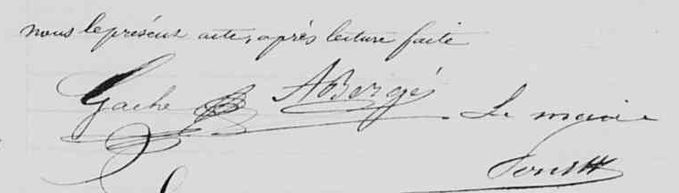 nous le présent acte, après lecture faite
Gache ABergé Le maire
Pons